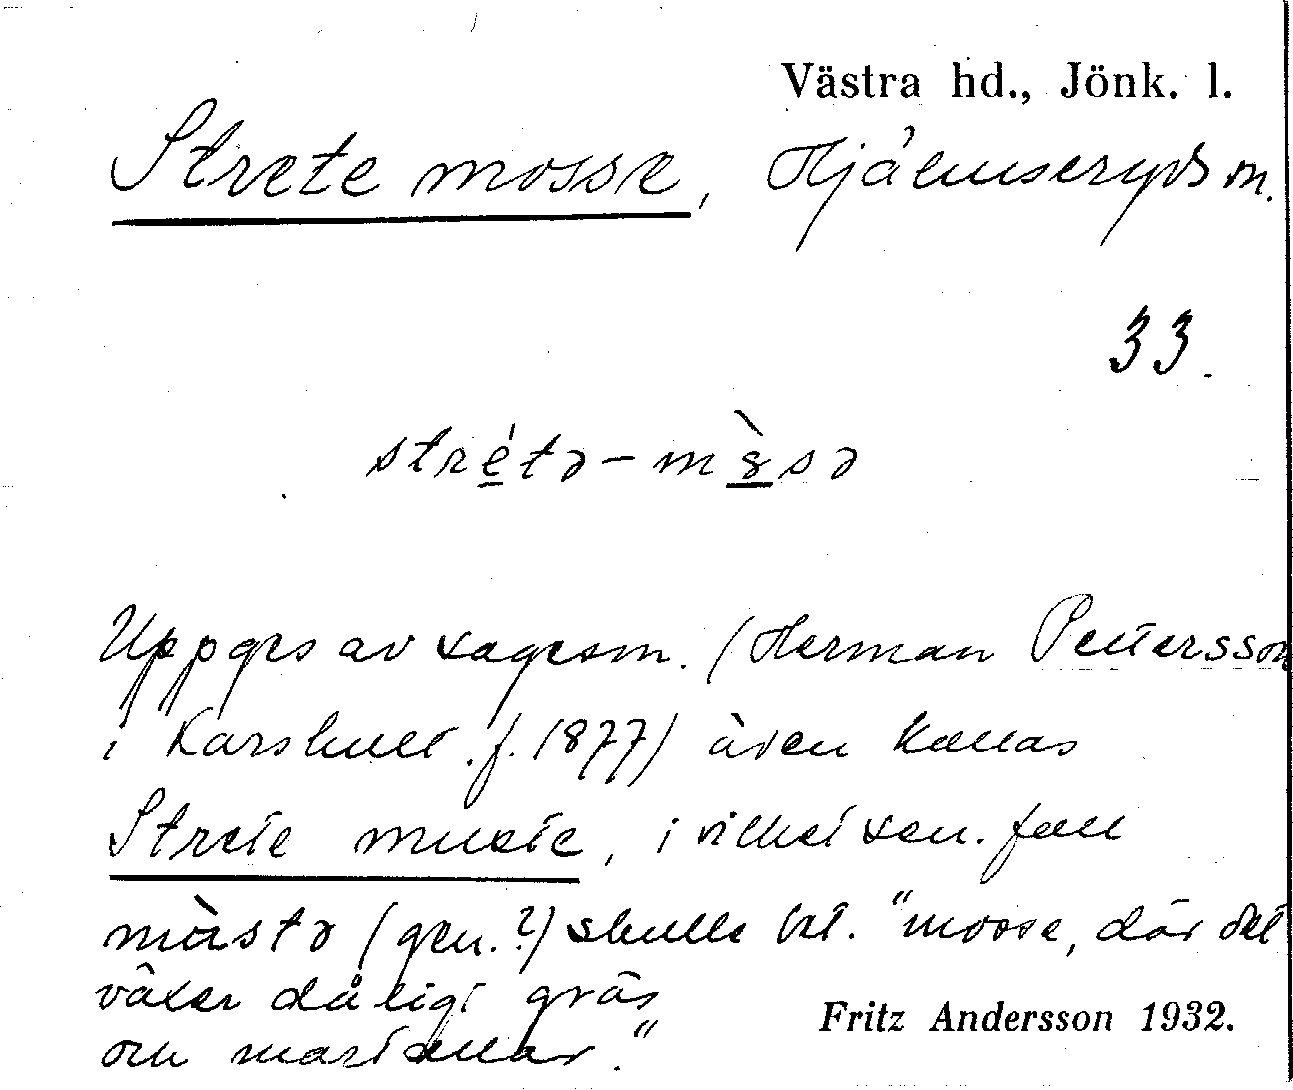 Västra hd., Jönk. l.
Strete mosse, Hjälmseryds sn.
33.
strétə-mòsə
Uppges av sagesm. (Herman Pettersson
i Karshult f. 1877) även kallas
Strete muste, i vilket sen. fall
mùstə (gen. ?) skulle bet. "mosse, där det
växer dåligt gräs
och martallar."
Fritz Andersson 1932.